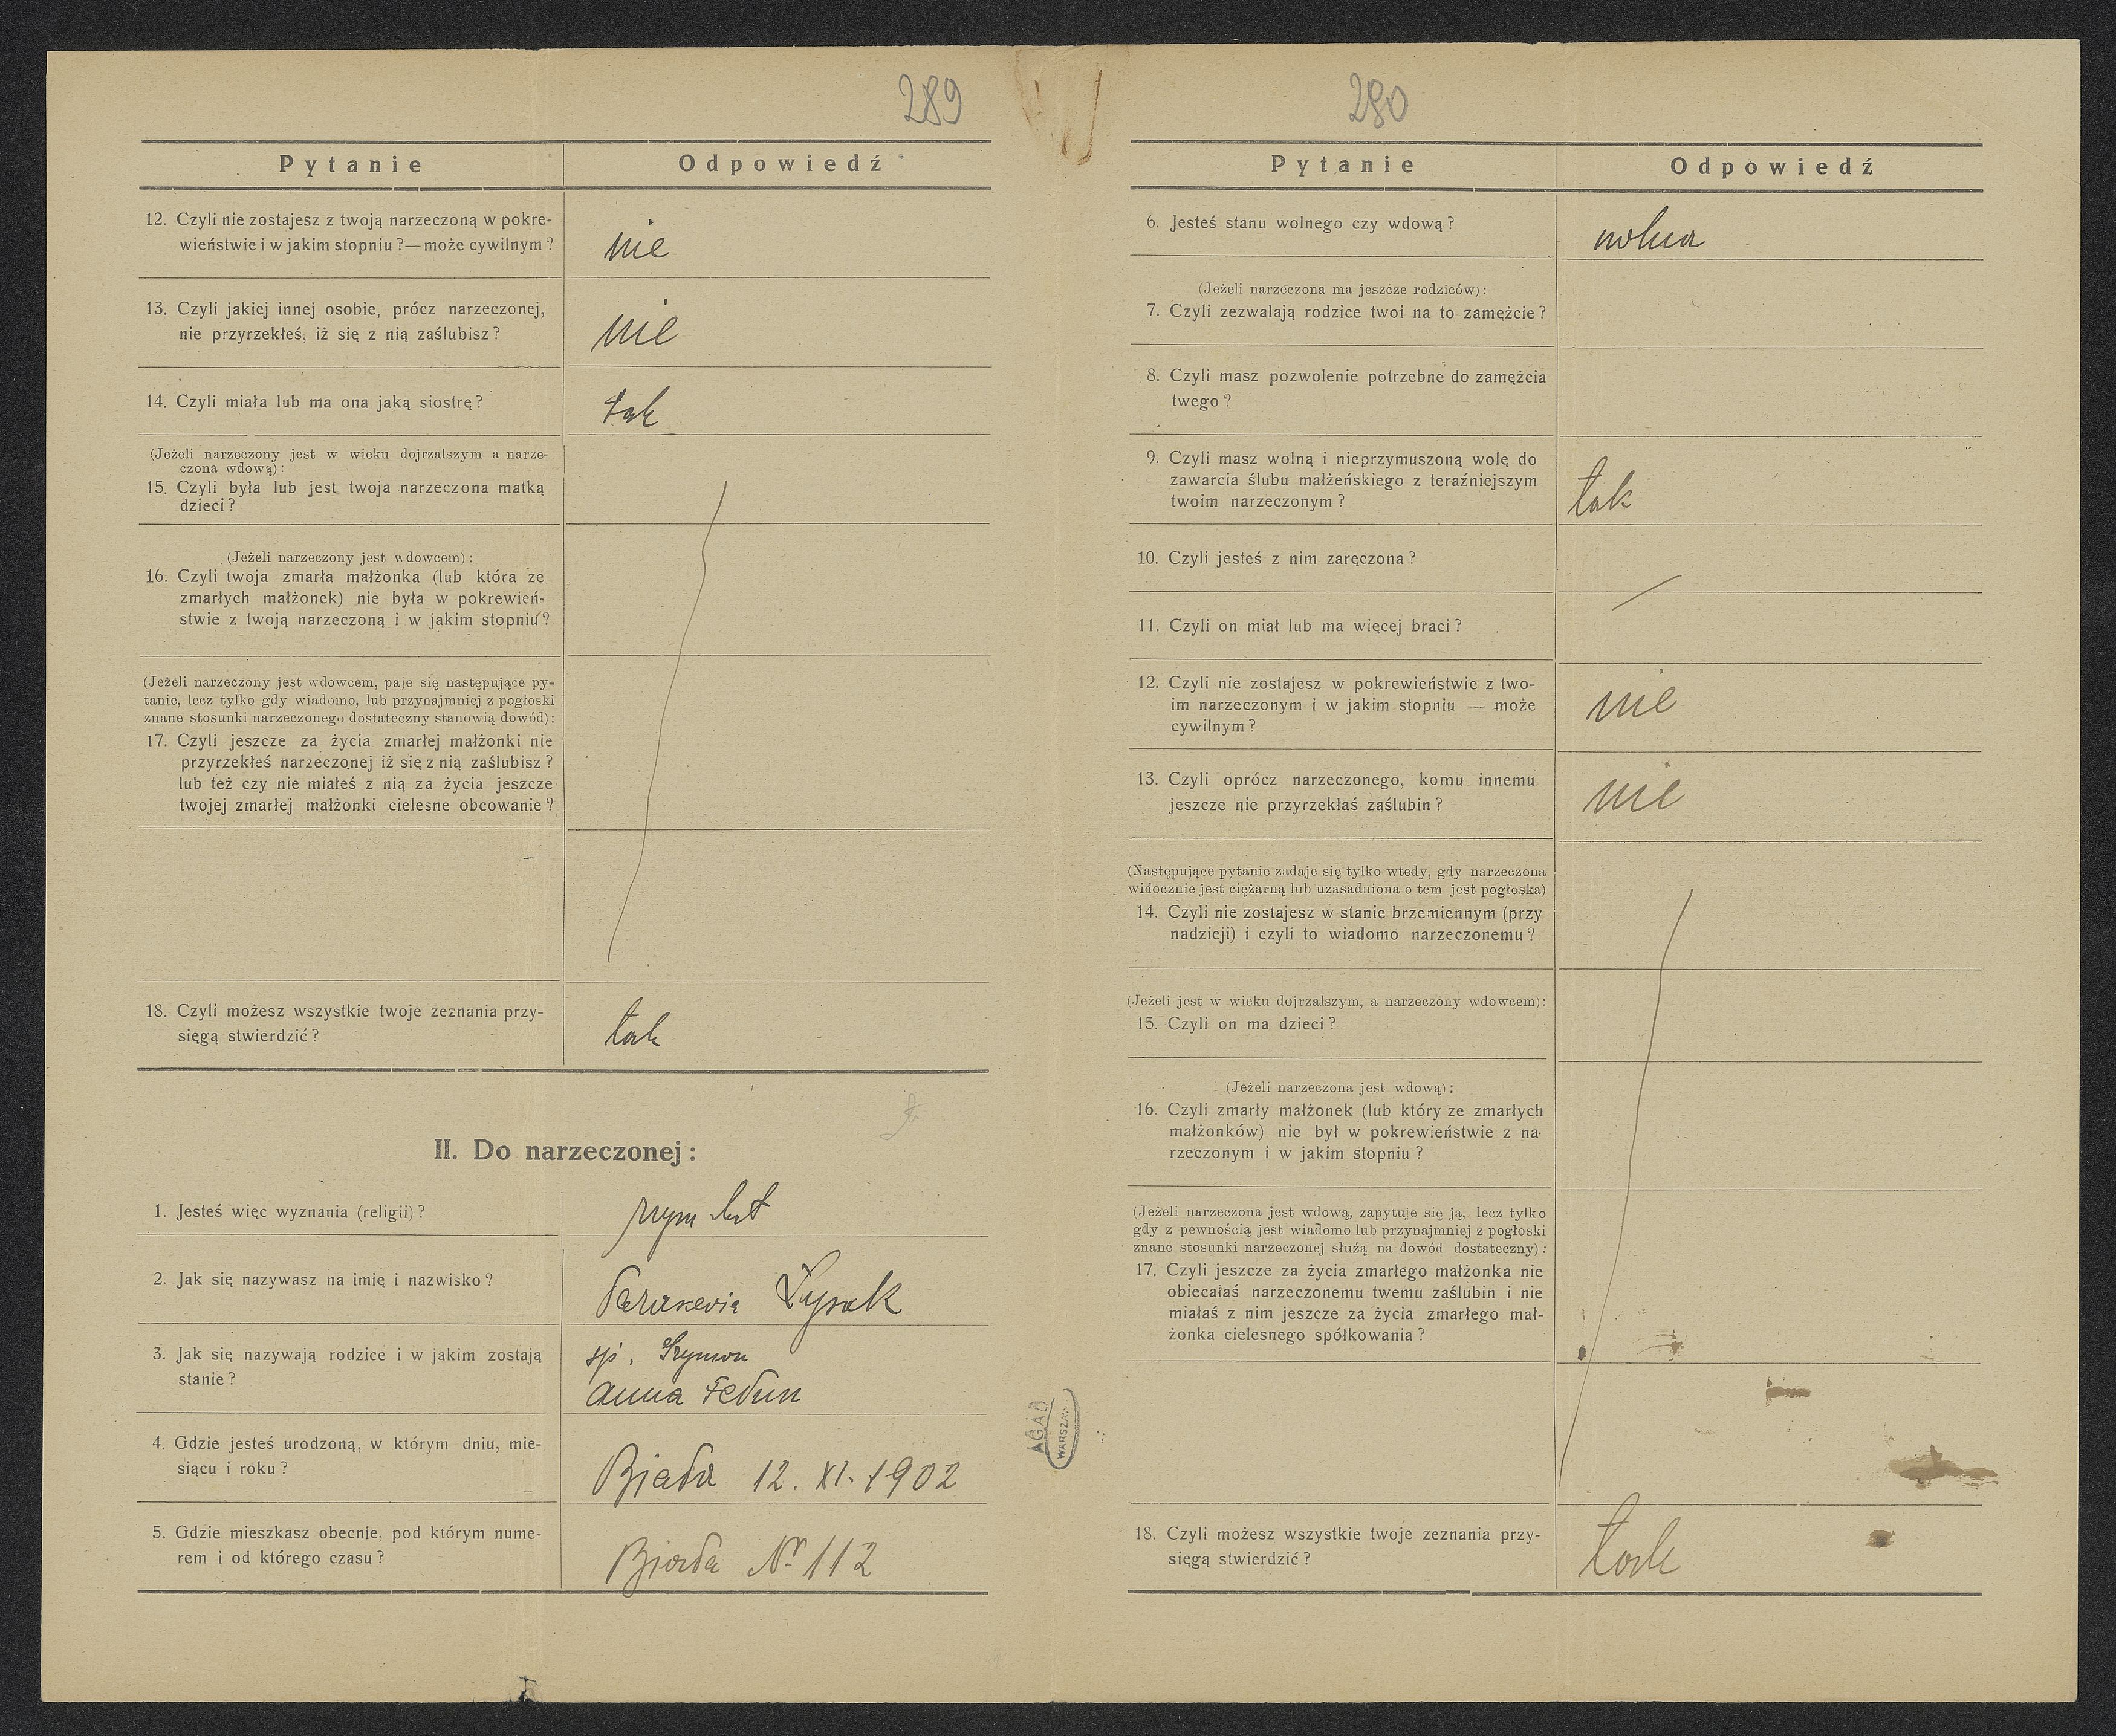 289
Pytanie Odpowiedź
12. Czyli nie zostajesz z twoją narzeczoną w pokre-
wieństwie i w jakim stopniu?—może cywilnym?
nie
13. Czyli jakiej innej osobie, prócz narzeczonej,
nie przyrzekłeś, iż się z nią zaślubisz?
nie
14. Czyli miała lub ma ona jaką siostrę?
tak
(Jeżeli narzeczony jest w wieku dojrzalszym a narze-
czona wdową):
15. Czyli była lub jest twoja narzeczona matką
dzieci?
(Jeżeli narzeczony jest wdowcem):
16. Czyli twoja zmarła małżonka (lub która ze
zmarłych małżonek) nie była w pokrewień-
stwie z twoją narzeczoną i w jakim stopniu?
(Jeżeli narzeczony jest wdowcem, paje się następujące py-
tanie, lecz tylko gdy wiadomo, lub przynajmniej z pogłoski
znane stosunki narzeczonego dostateczny stanowią dowód):
17. Czyli jeszcze za życia zmarłej małżonki nie
przyrzekłeś narzeczonej iż się z nią zaślubisz?
lub też czy nie miałeś z nią za życia jeszcze
twojej zmarłej małżonki cielesne obcowanie?
18. Czyli możesz wszystkie twoje zeznania przy-
sięgą stwierdzić?
tak
II. Do narzeczonej:
1. Jesteś więc wyznania (religii)?
2. Jak się nazywasz na imię i nazwisko?
Paraskevia Łysak
3. Jak się nazywają rodzice i w jakim zostają
stanie?
śp. Szymon
Anna Fedun
4. Gdzie jesteś urodzoną, w którym dniu, mie-
siącu i roku?
Biała 12. XI. 1902
5. Gdzie mieszkasz obecnie, pod którym nume-
rem i od którego czasu?
Biała Nr 112
AGAD
WARSZAWA
280
Pytanie Odpowiedź
6. Jesteś stanu wolnego czy wdową?
wolna
(Jeżeli narzeczona ma jeszcze rodziców):
7. Czyli zezwalają rodzice twoi na to zamężcie?
8. Czyli masz pozwolenie potrzebne do zamężcia
twego?
9. Czyli masz wolną i nieprzymuszoną wolę do
zawarcia ślubu małżeńskiego z teraźniejszym
twoim narzeczonym?
tak
10. Czyli jesteś z nim zaręczona?
11. Czyli on miał lub ma więcej braci?
12. Czyli nie zostajesz w pokrewieństwie z two-
im narzeczonym i w jakim stopniu — może
cywilnym?
nie
13. Czyli oprócz narzeczonego, komu innemu
jeszcze nie przyrzekłaś zaślubin?
nie
(Następujące pytanie zadaje się tylko wtedy, gdy narzeczona
widocznie jest ciężarną lub uzasadniona o tem jest pogłoska)
14. Czyli nie zostajesz w stanie brzemiennym (przy
nadzieji) i czyli to wiadomo narzeczonemu?
(Jeżeli jest w wieku dojrzalszym, a narzeczony wdowcem):
15. Czyli on ma dzieci?
(Jeżeli narzeczona jest wdową):
16. Czyli zmarły małżonek (lub który ze zmarłych
małżonków) nie był w pokrewieństwie z na-
rzeczonym i w jakim stopniu?
(Jeżeli narzeczona jest wdową, zapytuje się ją, lecz tylko
gdy z pewnością jest wiadomo lub przynajmniej z pogłoski
znane stosunki narzeczonej służą na dowód dostateczny):
17. Czyli jeszcze za życia zmarłego małżonka nie
obiecałaś narzeczonemu twemu zaślubin i nie
miałaś z nim jeszcze za życia zmarłego mał-
żonka cielesnego spółkowania?
18. Czyli możesz wszystkie twoje zeznania przy-
sięgą stwierdzić?
tak